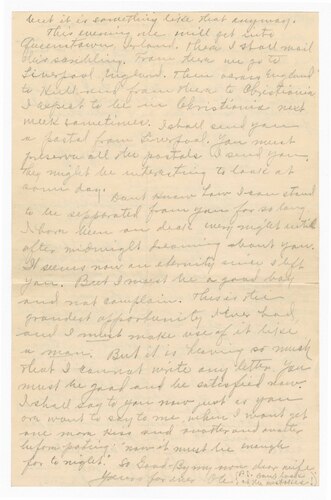 but it is something like that anyway.
This evening we will get into
Queenstown, Ireland. There I shall mail
this scribling. From there we go to
Liverpool England. Then across England
to Hull and from there to Christiania
I expect to be in Christiania next
week sometime. I shall send you
a postal from Liverpool. You must
preserve all the postals I send you
they might be interesting to look at
some day.
Dont know how I can stand
to be separated from you for so long
I have been on deck every night until
after midnight dreaming about you.
It seems now an eternity since I left
you. But I must be a good boy
and not complain. This is the
grandest opportunity I ever had
and I must make use of it like
a man. But it is so much
that I cannot write any letter. You
must be good and be satisfied now.
I shall say to you now just as you
one want to say to me when I want get
one more kiss and another and another
before parting: "now it must be enough
for to night." So Good By my now dear wife
Yours for ever Ole